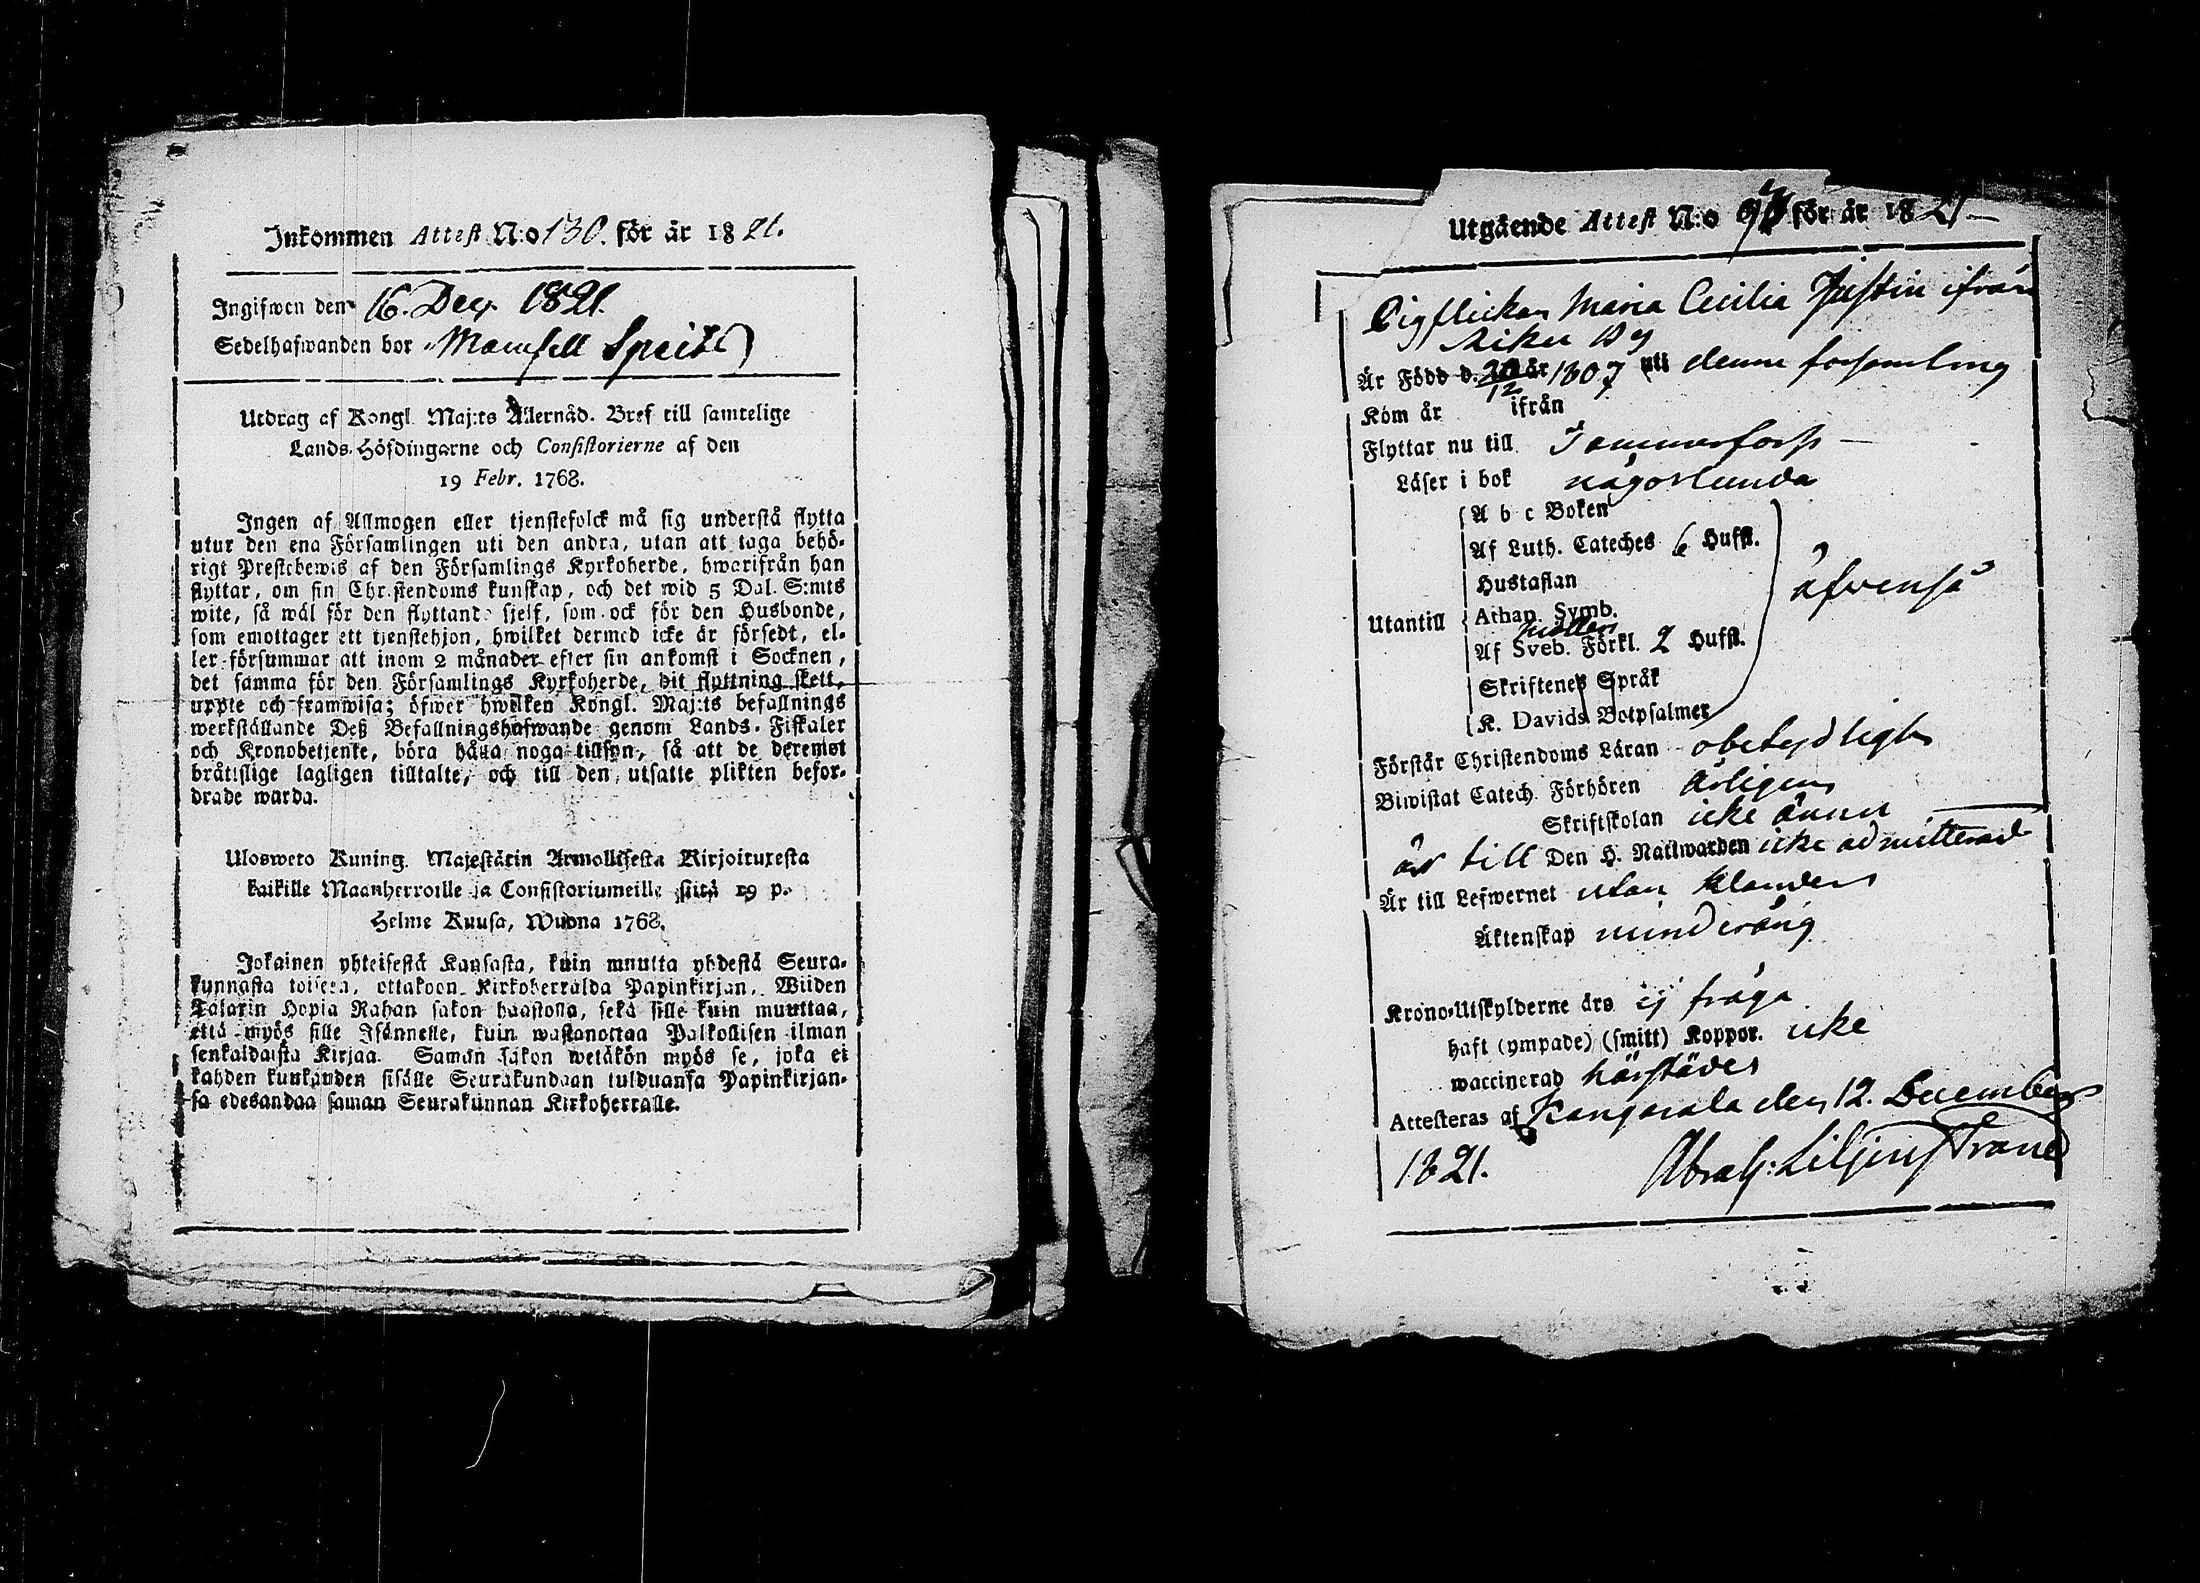 Inkommen Attest N:o 130. för år 1821.
Ingifwen den 16. Dec. 1821.
Sedelhafwanden bor Mamsell Speitz
Utdrag af Kongl. Maj:ts Allernåd. Bref till samtelige
Lands-Höfdingarne och Consistorierne af den
19 Febr. 1768.
Ingen af Allmogen eller tjenstefolck må sig understå flytta
utur den ena Församlingen uti den andra, utan att taga behö-
rigt Prestebewis af den Församlings Kyrkoherde, hwarifrån han
flyttar, om sin Christendoms kunskap, och det wid 5 Dal. S:mts
wite, så wäl för den flyttande sjelf, som ock för den Husbonde,
som emottager ett tjenstehjon, hwilket dermed icke är försedt, el-
ler försummar att inom 2 månader efter sin ankomst i Socknen,
det samma för den Församlings Kyrkoherde, dit flyttning skett,
uppte och framwisa; öfwer hwilken Kongl. Maj:ts befallnings
werkställande Deß Befallningshafwande genom Lands-Fiskaler
och Kronobetjente, böra hålla noga tillsyn, så att de deremot
bråttslige lagligen tilltalte, och till den utsatte plikten befor-
drade warda.
Ulosweto Kuning. Majestätin Armollisesta Kirjoituxesta
kaikille Maanherroille ja Consistoriumeille siitä 19 p.
Helme Kuusa, Wuona 1768.
Jokainen yhteisestä Kansasta, kuin muutta yhdestä Seura-
kunnasta toiseen, ottakoon Kirkoherralda Papinkirjan, Wiiden
Talarin Hopia Rahan sakon haastolla, sekä sille kuin muuttaa,
että myös sille Isännelle, kuin wastanottaa Palkollisen ilman
senkaldaista Kirjaa. Saman sakon wetäkön myös se, joka ei
kahden kuukauden sisälle Seurakundaan tulduansa Papinkirjan-
sa edesandaa saman Seurakunnan Kirkoherralle.
Utgående Attest N:o för år 1821
Pigflickan Maria Cecilia Justin ifrån
Riku By
Är Född d. 20/12 år 1807 uti denne församling
Kom år ifrån
Flyttar nu till Tammerfors
Läser i bok någorlunda
A b c Boken
Af Luth. Cateches 6 Hufst.
Hustaflan
Utantill Athan. Symb. äfvenså
Af Sveb. Förkl. 2 Hufst.
Skriftenes Språk
K. Davids Botpsalmer
Förstår Christendoms Läran obetydligt
Biwistat Catech. Förhören årligen
Skriftskolan icke ännu
är till Den H. Nattwarden icke admitterad
Är till Lefwernet utan klander
Äktenskap minderårig
Krono-Utskylderne äro ej fråga
haft (ympade) (smitt) Koppor. icke
waccinerad härstädes
Attesteras af Kangasala den 12. December
1821. Abrah: Liljenstrand